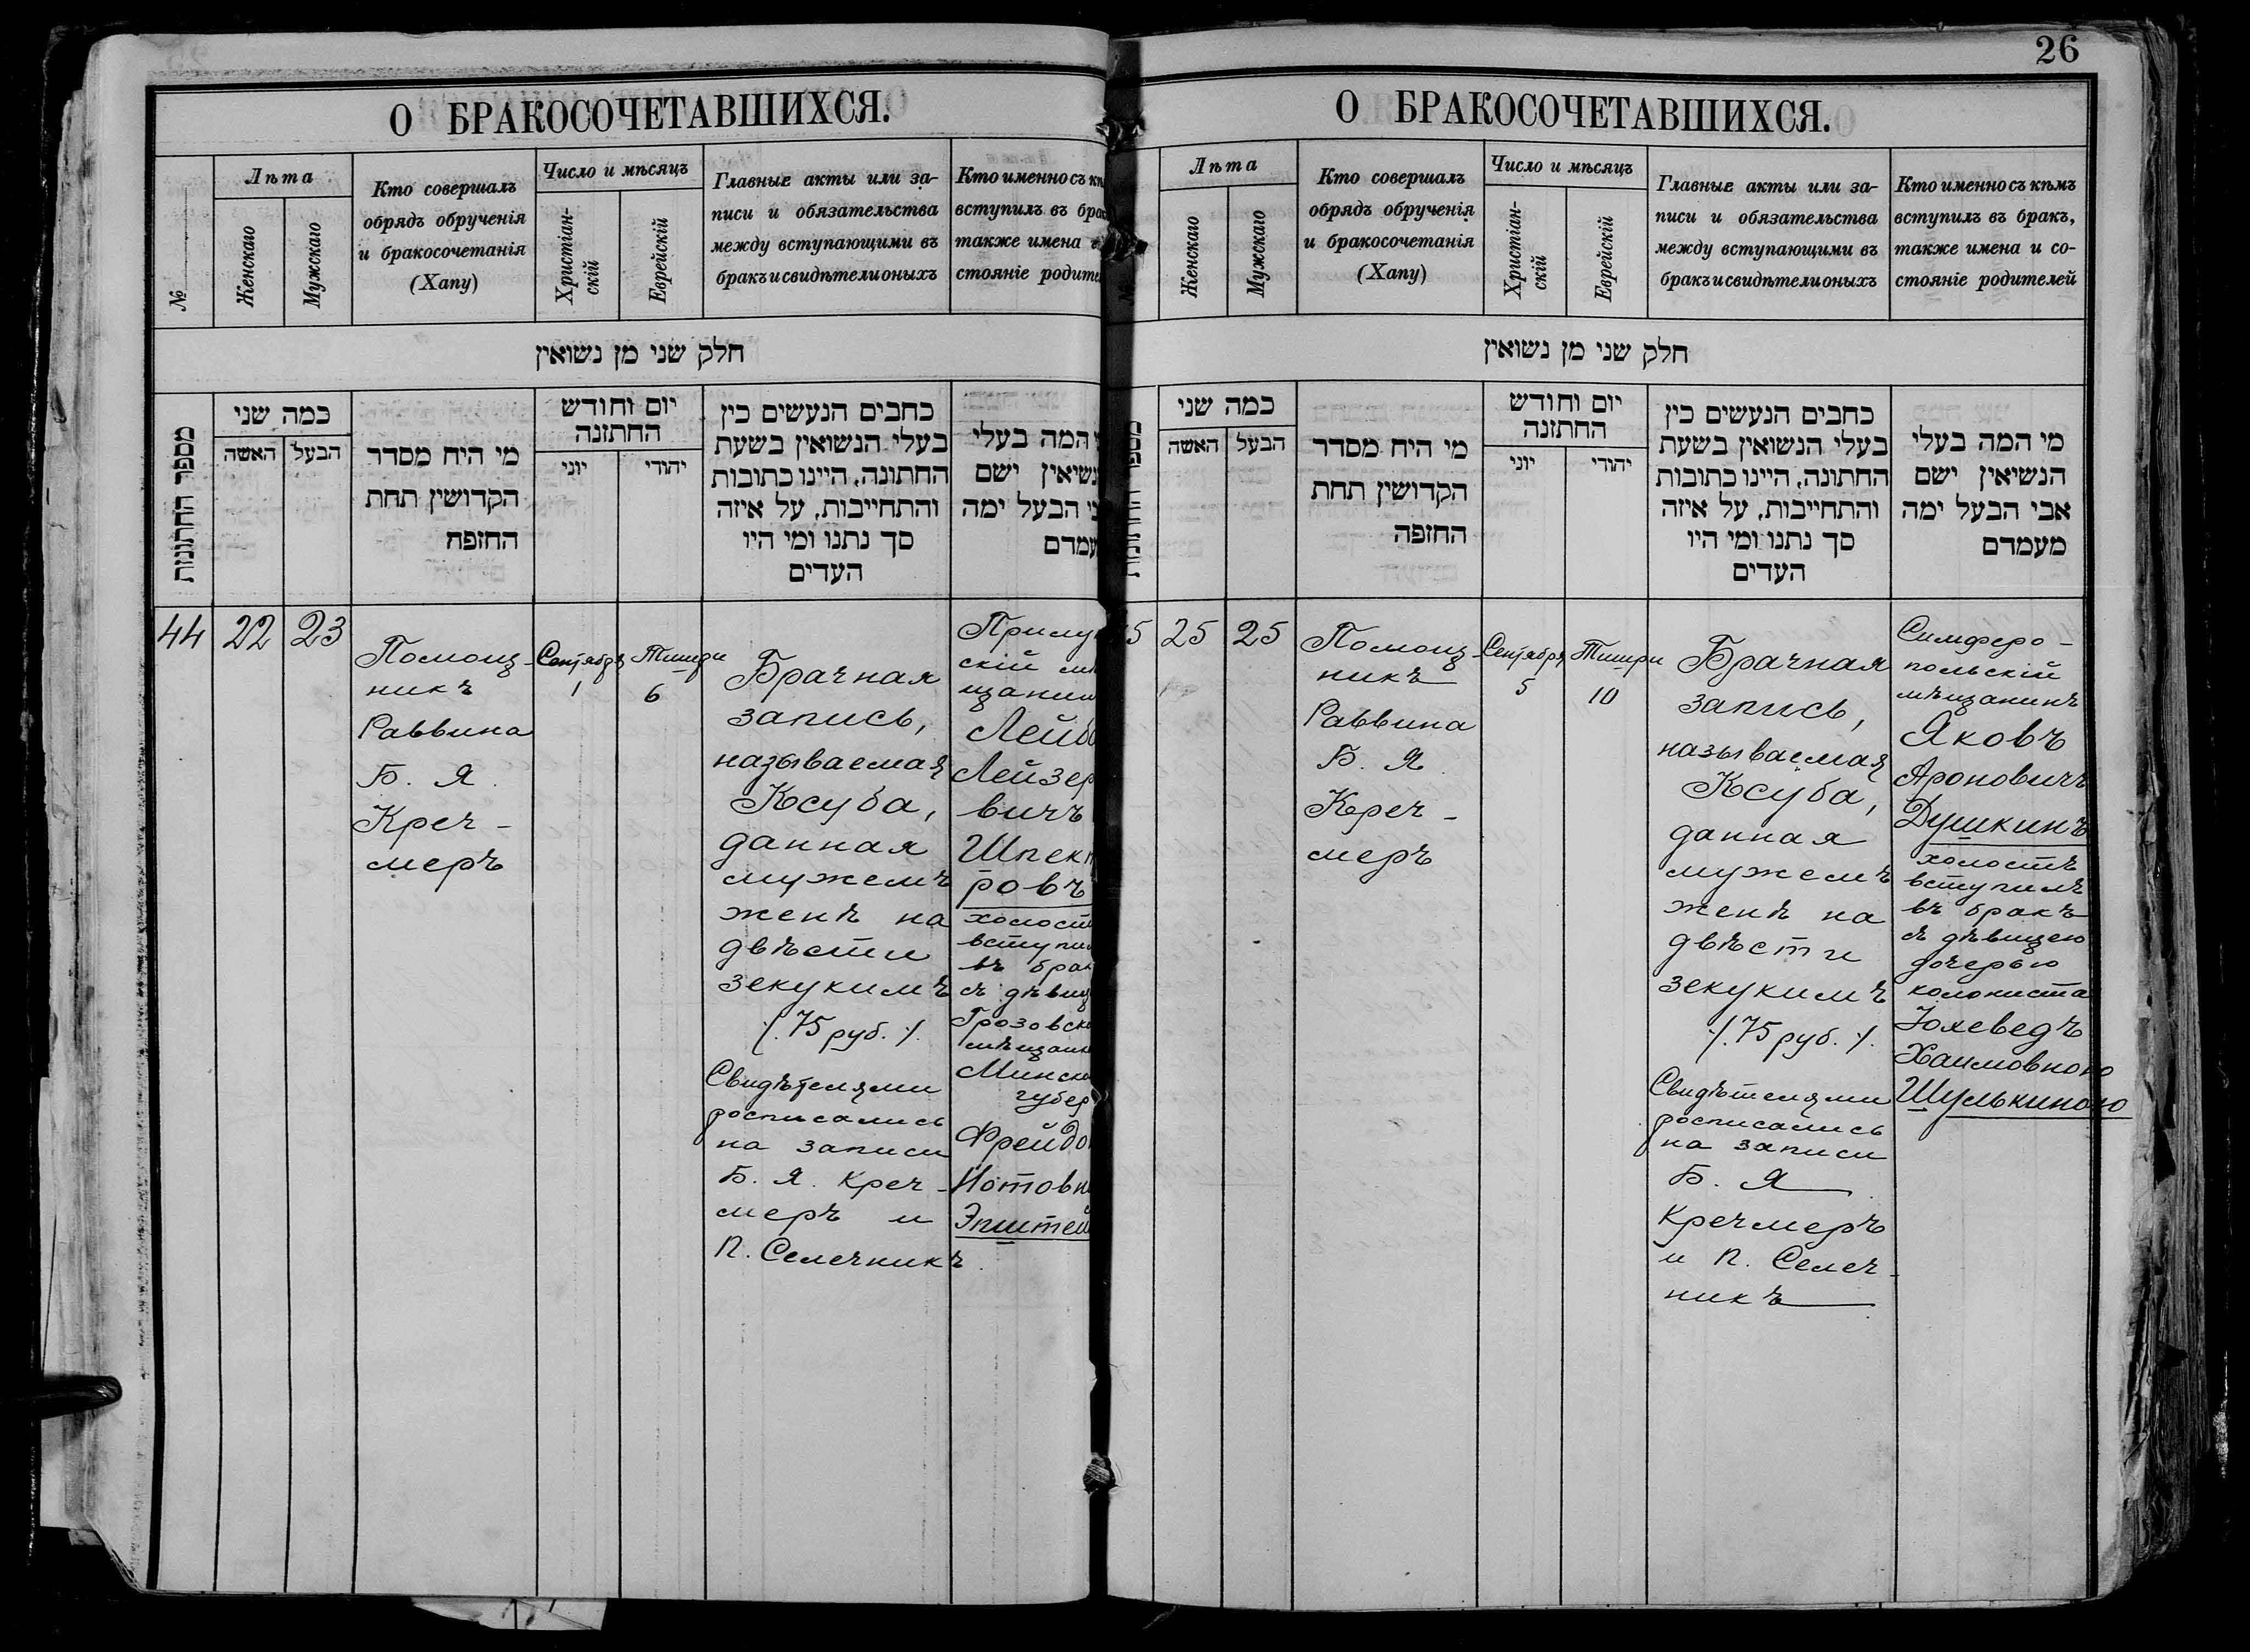 26
О БРАКОСОЧЕТАВШИХСЯ.
№
Лѣта
Женскаго
Мужскаго
Кто совершалъ
обрядъ обрученія
и бракосочетанія
(Хапу)
Число и мѣсяцъ
Христіан-
скій
Еврейскій
Главные акты или за-
писи и обязательства
между вступающими въ
бракъ и свидѣтели оныхъ
Кто именно съ
вступилъ въ
также имена
стояніе
חלק שני מן נשואין
מספר החתונות
כמה שני
האשה
הבעל
מי היח מסדר
הקדושין תחת
החזפח
יום וחודש
החתזנה
יוני
יהודי
כחבים הנעשים כין
בעלי הנשואין בשעת
החתונה, היינו כתובות
והתחייבות, על איזה
סך נתנו ומי היו
העדים
המה בעלי
ישם
הבעל ימה
44
22
23
Помощ-
никъ
Раввина
Б. Я.
Креч-
меръ
Сентября
1
Тишри
6
Брачная
запись,
называемая
Ксуба,
данная
мужемъ
женѣ на
двѣсти
зекукимъ
/. 75 руб. /.
Свидѣтелями
росписались
на записи
Б. Я. Креч-
меръ и
П. Селечникъ.
скій
вичъ
ровъ
въ
съ
О БРАКОСОЧЕТАВШИХСЯ.
Лѣта
Женскаго
Мужскаго
Кто совершалъ
обрядъ обрученія
и бракосочетанія
(Хапу)
Число и мѣсяцъ
Христіан-
скій
Еврейскій
Главные акты или за-
писи и обязательства
между вступающими въ
бракъ и свидѣтели оныхъ
Кто именно съ кѣмъ
вступилъ въ бракъ,
также имена и со-
стояніе родителей
חלק שני מן נשואין
כמה שני
האשה
הבעל
מי היח מסדר
הקדושין תחת
החזפה
יום וחודש
החתזנה
יוני
יהודי
כחבים הנעשים כין
בעלי הנשואין בשעת
החתונה, היינו כתובות
והתחייבות, על איזה
סך נתנו ומי היו
העדים
מי המה בעלי
הנשיאין ישם
אבי הבעל ימה
מעמדם
5
25
25
Помощ-
никъ
Раввина
Б. Я.
Креч-
меръ
Сентября
5
Тишри
10
Брачная
запись,
называемая
Ксуба,
данная
мужемъ
женѣ на
двѣсти
зекукимъ
/. 75 руб. /.
Свидѣтелями
росписались
на записи
Б. Я.
Кречмеръ
и П. Селеч-
никъ
Симферо-
польскій
мѣщанинъ
Яковъ
Ароновичъ
Душкинъ
холостъ
вступилъ
въ бракъ
съ дѣвицею
дочерью
колониста
Іохеведъ
Хаимовною
Шулькиною